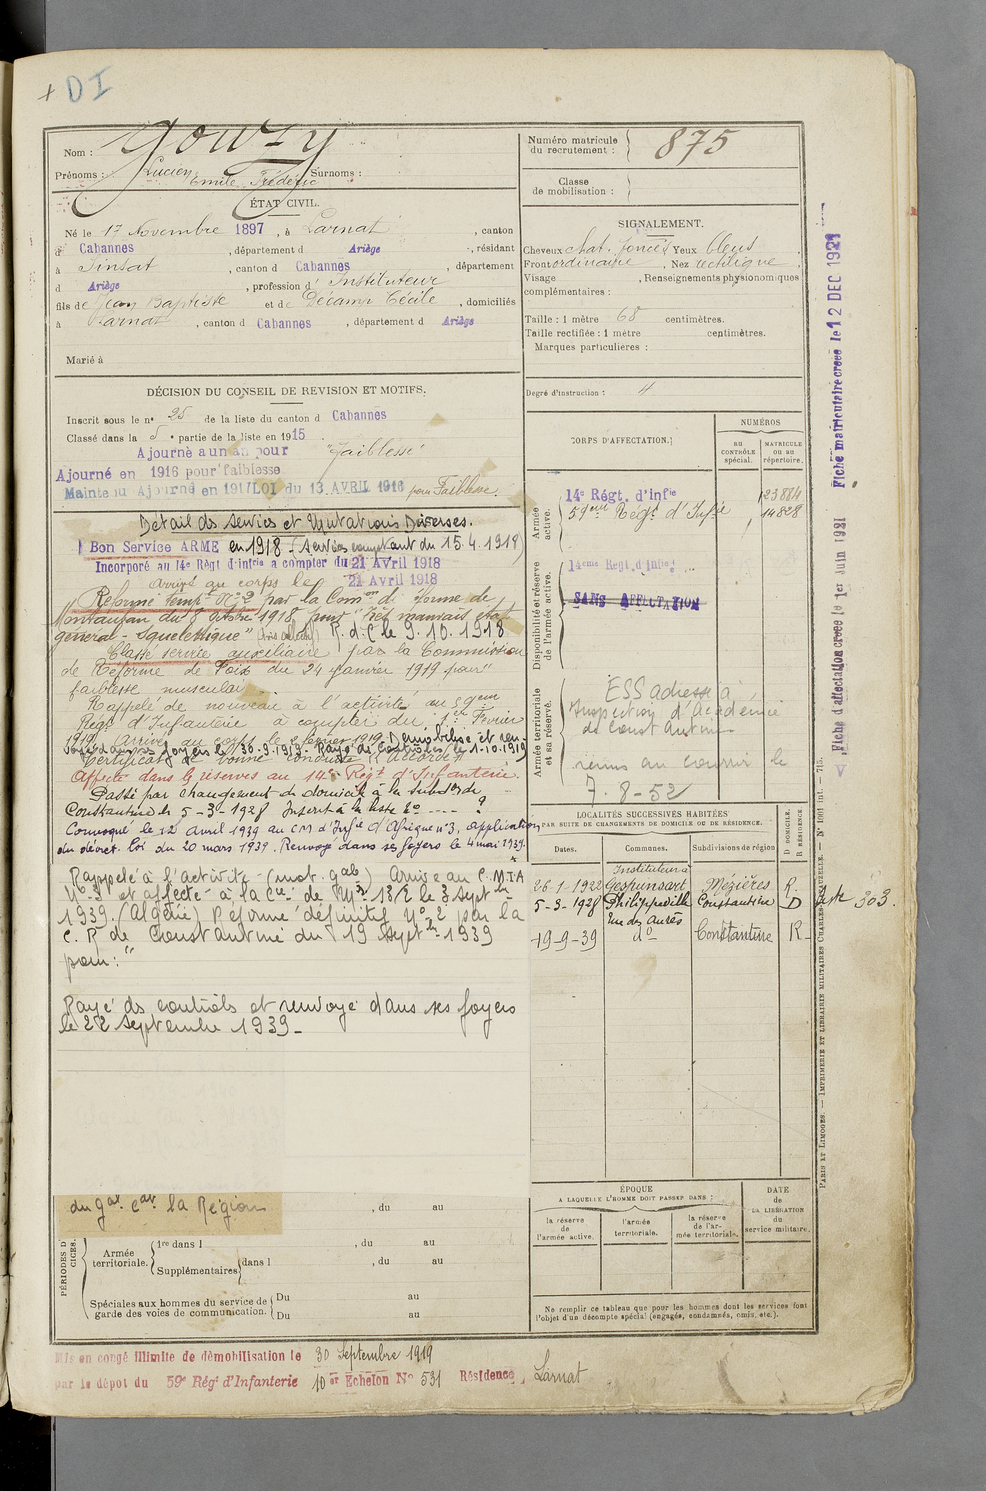 + DI
Nom : Gouzy
Prénoms : Lucien Emile Frédéric Surnoms :
Numéro matricule du recrutement : 875
Classe de mobilisation :
ÉTAT CIVIL.
Né le 17 Novembre 1897, à Larnat, canton
d Cabannes, département d Ariège, résidant
à Sinsat, canton d Cabannes, département
d Ariège, profession d' Instituteur
fils de Jean Baptiste et de Décamp Cécile, domiciliés
à Larnat, canton d Cabannes, département d Ariège
Marié à
SIGNALEMENT.
Cheveux chat. foncés Yeux bleus
Front ordinaire, Nez rectiligne
Visage , Renseignements physionomiques
complémentaires :
Taille : 1 mètre 68 centimètres.
Taille rectifiée : 1 mètre centimètres.
Marques particulières :
Degré d'instruction : 4
DÉCISION DU CONSEIL DE REVISION ET MOTIFS.
Inscrit sous le n° 25 de la liste du canton d Cabannes
Classé dans la 5e partie de la liste en 1915
Ajourné a un an pour "Faiblesse
Ajourné en 1916 pour faiblesse
Maintenu Ajourné en 1917 LOI du 13 AVRIL 1916 pour Faiblesse.
Détail des Services et Mutations Diverses.
Bon Service ARMÉ en 1918 (Services comptant du 15.4.1918)
Incorporé au 14e Régt d'infie a compter du 21 Avril 1918
Arrivé au corps le 21 Avril 1918
Réformé temp. N° 2 par la Comon de réforme de
Montauban du 8 octobre 1918 pour "Très mauvais état
général - Squelettique" R. d. C le 9.10.1918
Classé service auxiliaire par la Commission
de Réforme de Foix du 24 Janvier 1919 pour "
faiblesse musculaire
Rappelé de nouveau à l'activité au 59ème
Régt d'Infanterie à compter du 1er Février
1919. Arrivé au corps le 2 février 1919. Démobilisé et ren-
voyé dans ses foyers le 30-9-1919. Rayé des Contrôles le 1-10-1919
Certificat de bonne conduite "Accordé"
Affecté dans la réserve au 14e Régt d'Infanterie.
Passé par changement de domicile à la Subdon de
Constantine le 5-3-1928 Inscrit à la liste
Convoqué le 12 avril 1939 au CM d'Infie d'Afrique n°3, application
du décret-loi du 20 mars 1939. Renvoyé dans ses foyers le 4 mai 1939.
Rappelé à l'activité (mob. gale) Arrivé au C.M.I.A
N° 3 et affecté à la Cie de Mses 13/2 le 3 septbre
1939. (Algérie) Réformé définitif N° 2 par la
C. R de Constantine du 19 Septbre 1939
pour : "
Rayé des contrôles et renvoyé dans ses foyers
le 22 Septembre 1939 -
CORPS D'AFFECTATION.
NUMÉROS
AU CONTRÔLE spécial.
MATRICULE ou au répertoire.
Armée active.
14e Régt. d'infie 23884
59ème Régt d'Infie 14828
Disponibilité et réserve de l'armée active.
14eme Regt d'infie
SANS AFFECTATION
Armée territoriale et sa réserve.
ESS adressé à
Inspection d'Académie
de Constantine
remis au courrier le
7-8-52
LOCALITÉS SUCCESSIVES HABITÉES
PAR SUITE DE CHANGEMENTS DE DOMICILE OU DE RÉSIDENCE.
Dates. Communes. Subdivisions de région D DOMICILE. R RÉSIDENCE
Instituteur à
26-1-1922 Gespunsart Mézières R.
5-3-1928 Philippeville Constantine D
rue des Aurès
19-9-39 d° Constantine R -
303.
du gal cat la Région , du au
PÉRIODES D
CICES.
Armée territoriale. 1re dans l , du au
Supplémentaires dans l , du au
Spéciales aux hommes du service de garde des voies de communication. Du au
Du au
ÉPOQUE
A LAQUELLE L'HOMME DOIT PASSER DANS :
la réserve de l'armée active.
l'armée territoriale.
la réserve de l'armée territoriale.
DATE de LA LIBÉRATION du service militaire.
Ne remplir ce tableau que pour les hommes dont les services font
l'objet d'un décompte spécial (engagés, condamnés, omis, etc.).
Mis en congé illimité de démobilisation le 30 Septembre 1919
par le dépôt du 59e Régt d'Infanterie 10er Echelon N° 531 Résidence, Larnat
Fiche d'affectation créée le 1er Juin 1931 Fiche matriculaire créée le 12 DEC 1931
PARIS ET LIMOGES. — IMPRIMERIE ET LIBRAIRIE MILITAIRES CHARLES-LAVAUZELLE. — N° 1001 int. — 715.